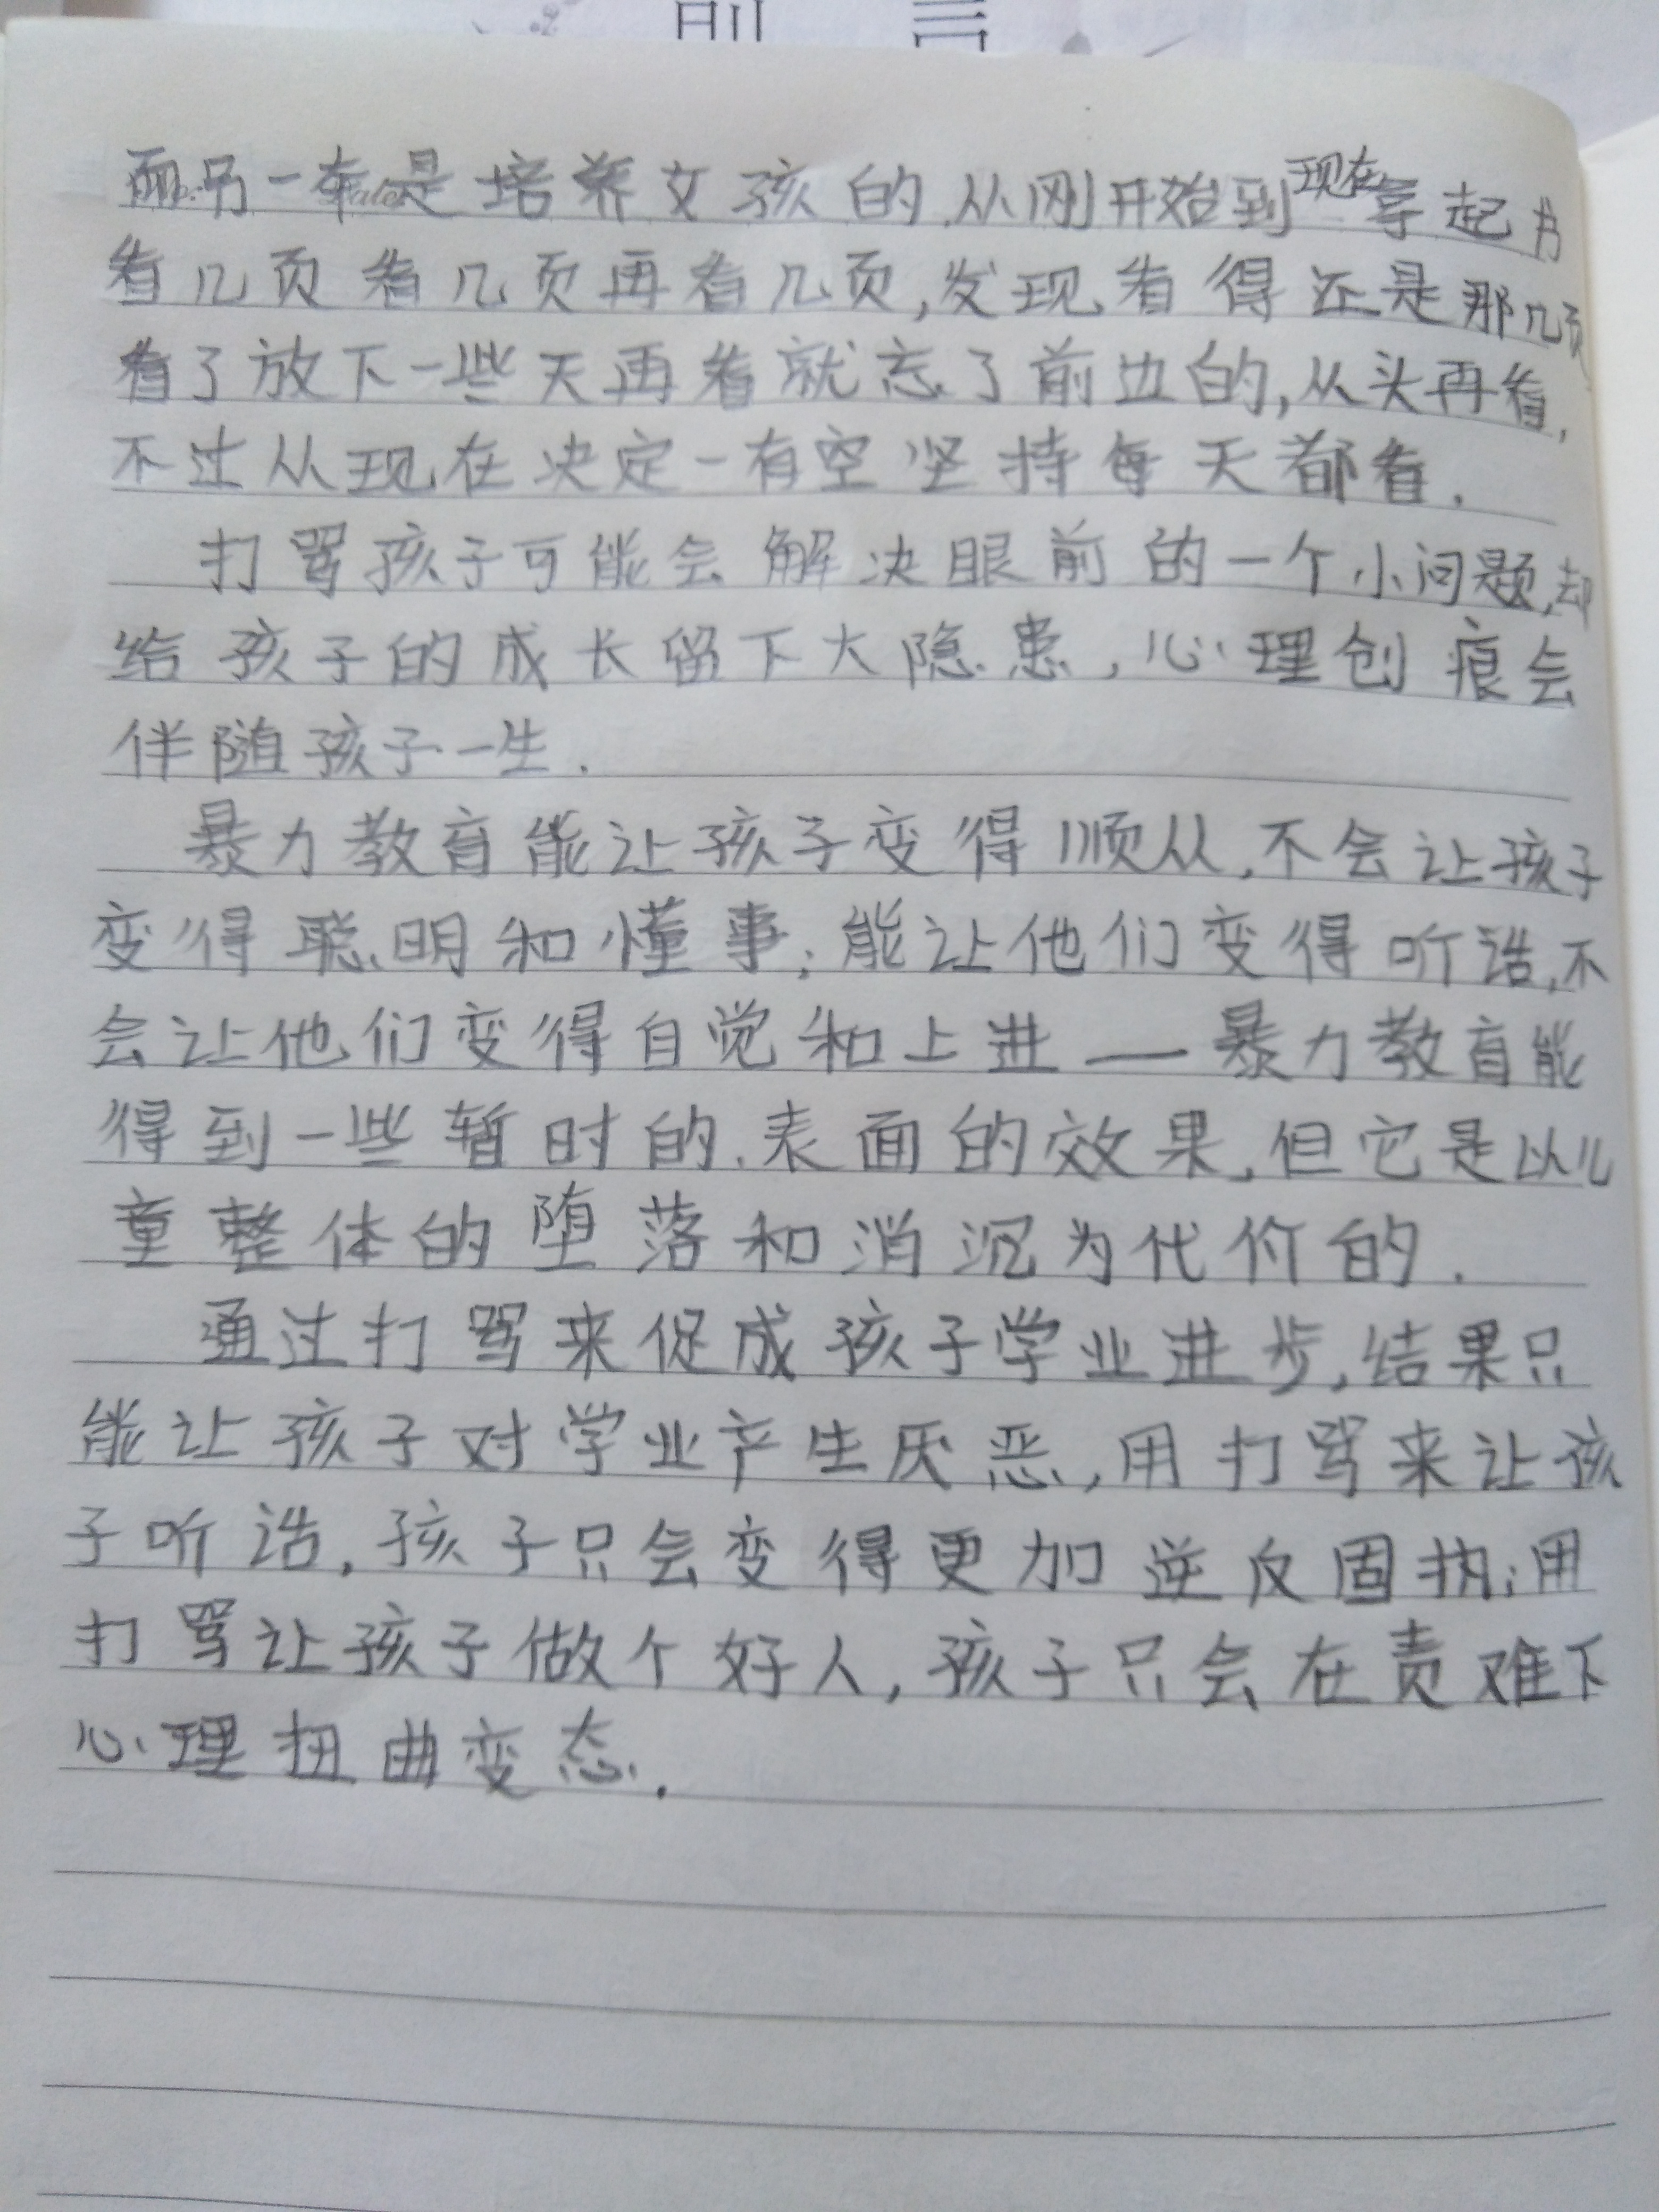 前言
而另一本是培养女孩的.从刚开始到现在拿起书
看几页看几页再看几页,发现看得还是那几页
看了放下一些天再看就忘了前边的,从头再看,
不过从现在决定一有空坚持每天都看.
打骂孩子可能会解决眼前的一个小问题,却
给孩子的成长留下大隐患,心理创痕会
伴随孩子一生.
暴力教育能让孩子变得顺从,不会让孩子
变得聪明和懂事;能让他们变得听话,不
会让他们变得自觉和上进—暴力教育能
得到一些暂时的.表面的效果,但它是以儿
童整体的堕落和消沉为代价的.
通过打骂来促成孩子学业进步,结果只
能让孩子对学业产生厌恶,用打骂来让孩
子听话,孩子只会变得更加逆反固执;用
打骂让孩子做个好人,孩子只会在责难下
心理扭曲变态.